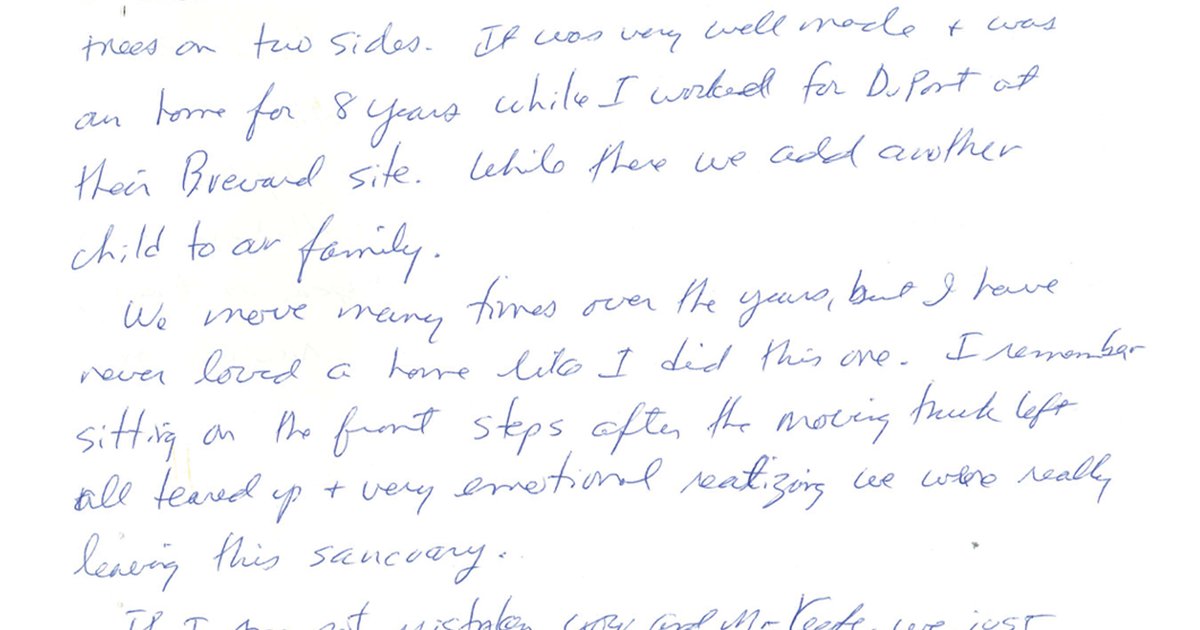 trees on two sides. It was very well made + was
our home for 8 years while I worked for DuPont at
their Brevard site. While there we add another
child to our family.
We move many times over the years, but I have
never loved a home like I did this one. I remember
sitting on the front steps after the moving truck left
all teared up + very emotional realizing we were really
leaving this sancuary.
If I am not mistaken you and Mr we just